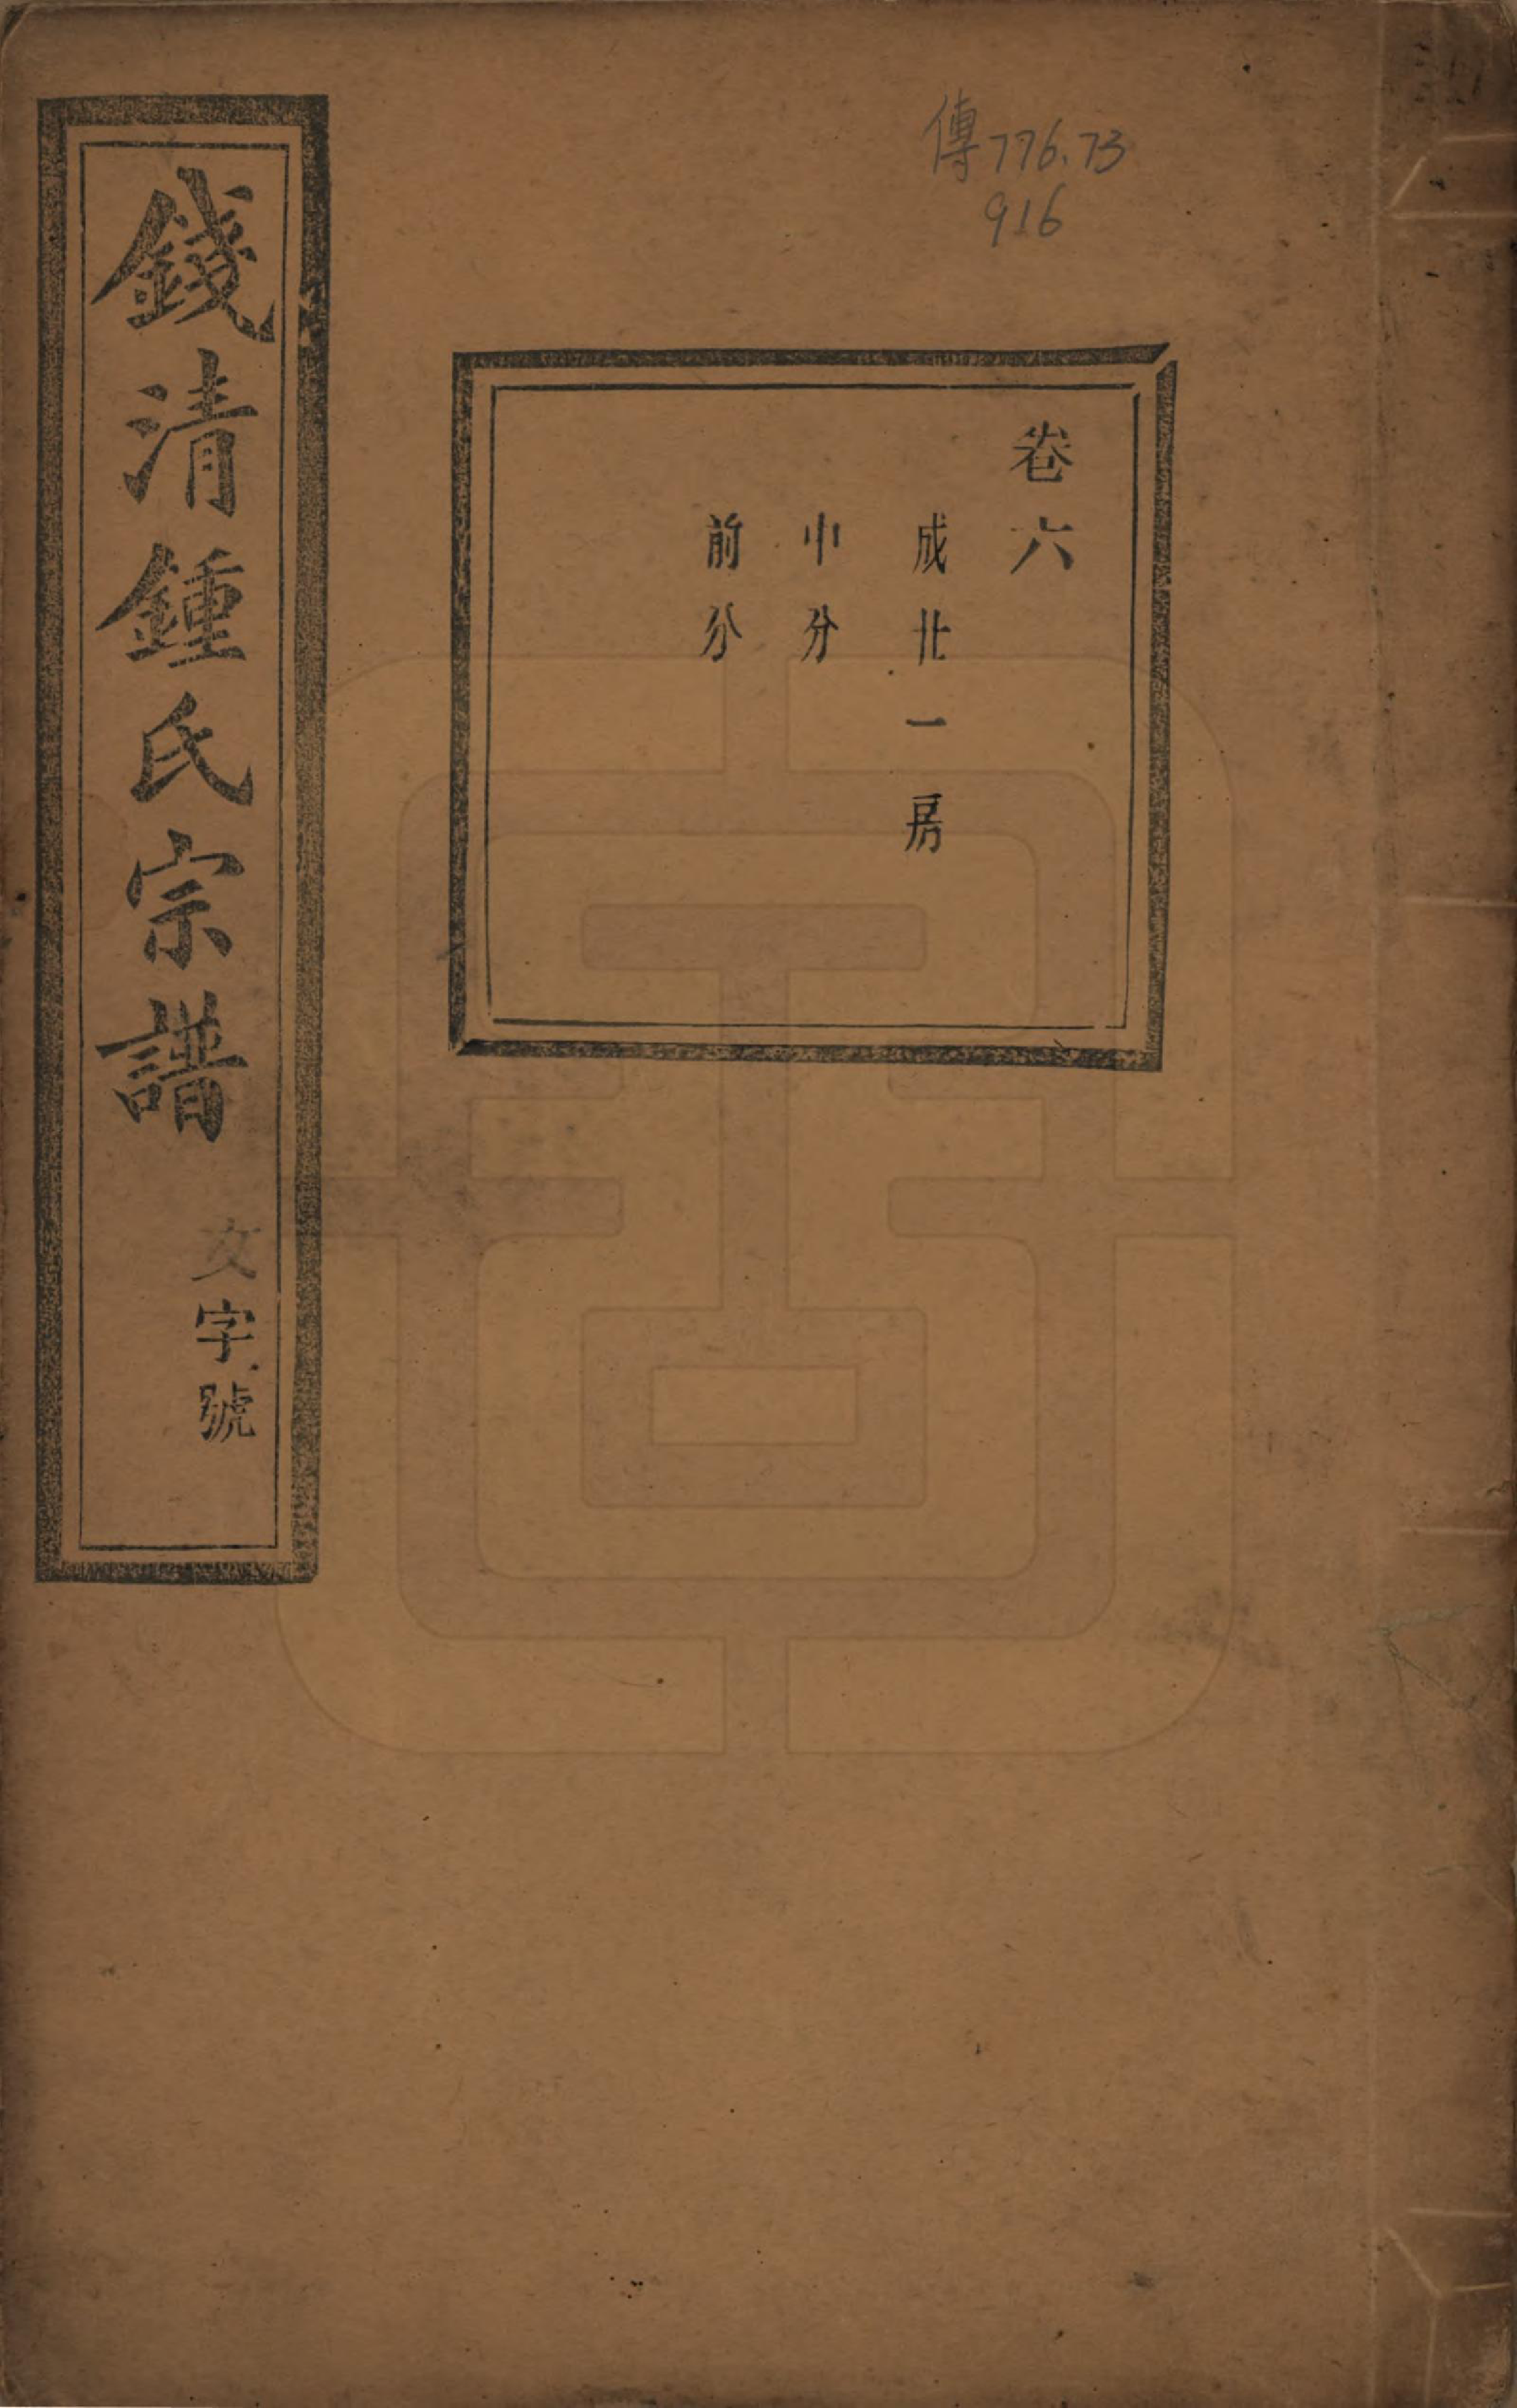 傳776.73
916
卷六
成廿一房
中分
前分
錢清鍾氏宗譜
文字號